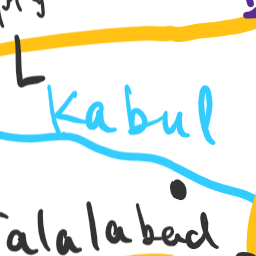 Kabul
Jalalabad